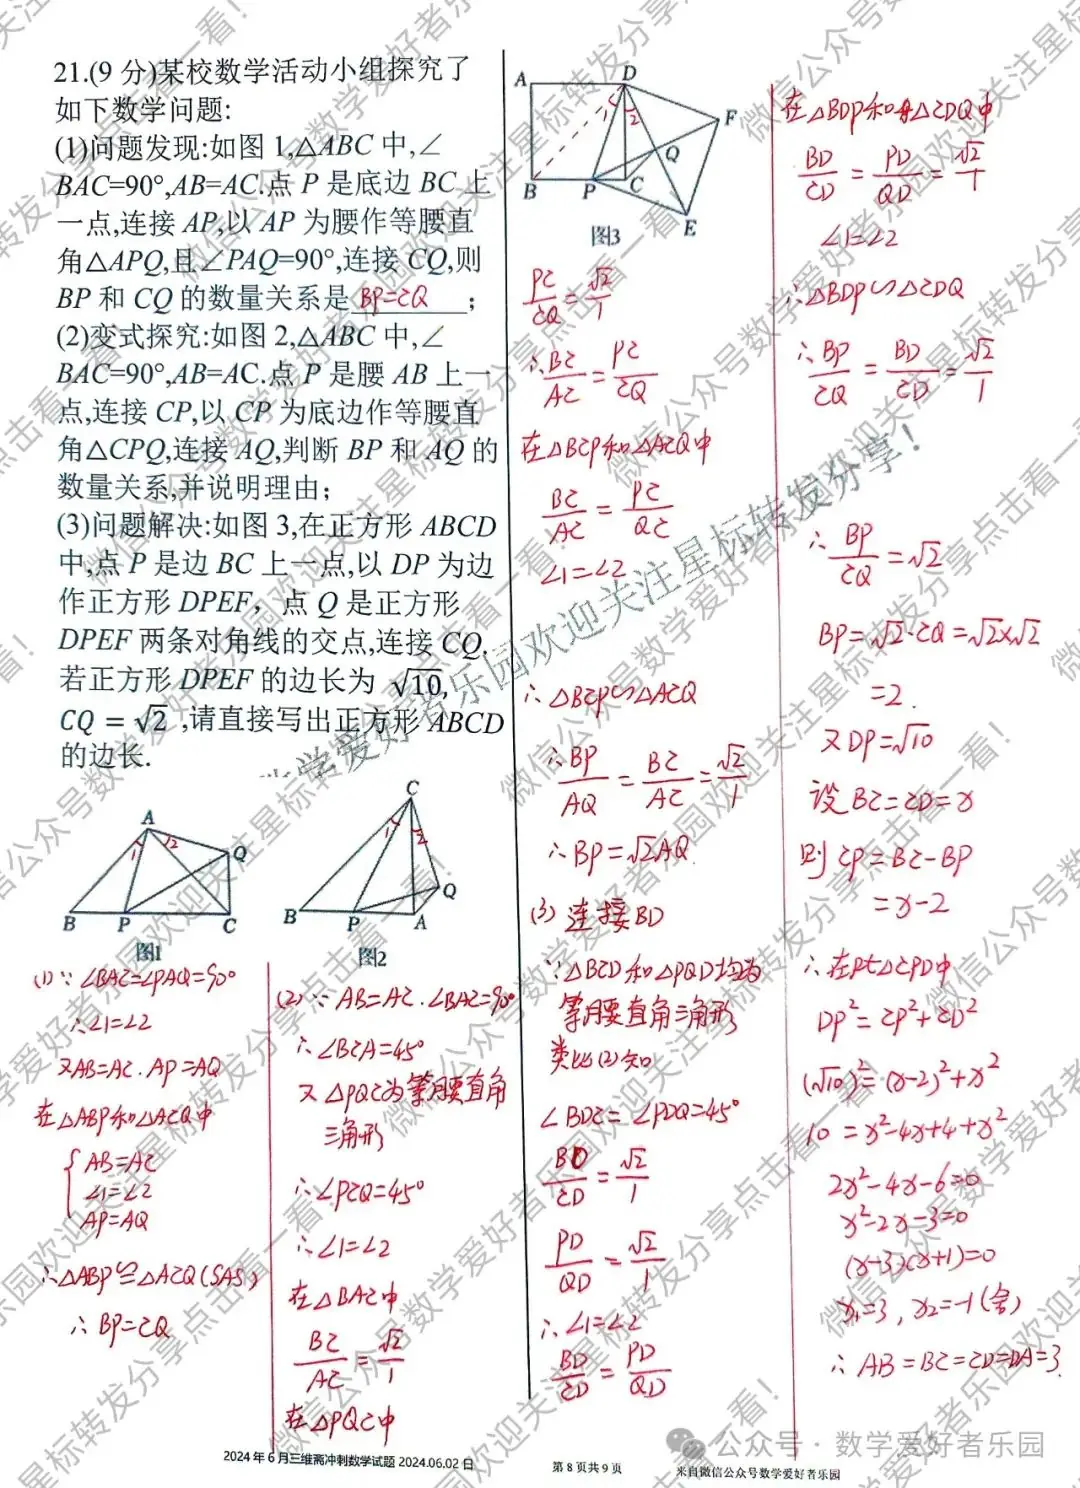 21.(9 分)某校数学活动小组探究了
如下数学问题:
(1)问题发现:如图 1,△ABC 中,∠
BAC=90°,AB=AC.点 P 是底边 BC 上
一点,连接 AP,以 AP 为腰作等腰直
角△APQ,且∠PAQ=90°,连接 CQ,则
BP 和 CQ 的数量关系是 BP=CQ ;
(2)变式探究:如图 2,△ABC 中,∠
BAC=90°,AB=AC.点 P 是腰 AB 上一
点,连接 CP,以 CP 为底边作等腰直
角△CPQ,连接 AQ,判断 BP 和 AQ 的
数量关系,并说明理由;
(3)问题解决:如图 3,在正方形 ABCD
中,点 P 是边 BC 上一点,以 DP 为边
作正方形 DPEF，点 Q 是正方形
DPEF 两条对角线的交点,连接 CQ.
若正方形 DPEF 的边长为 √10,
CQ = √2 ,请直接写出正方形 ABCD
的边长.
A
Q
B
P
C
1
2
图1
C
Q
B
P
A
1
2
图2
(1) ∵ ∠BAC=∠PAQ=90°
∴∠1=∠2
又AB=AC . AP=AQ
在△ABP和△ACQ中
AB=AC
∠1=∠2
AP=AQ
∴△ABP≌△ACQ(SAS)
∴ BP=CQ
(2) ∵ AB=AC . ∠BAC=90°
∴ ∠BCA=45°
又 △PQC为等腰直角
三角形
∴∠PCQ=45°
∴∠1=∠2
在△BAC中
BC/AC = √2/1
在△PQC中
A
D
F
Q
B
P
C
E
1
2
图3
PC/CQ = √2/1
∴ BC/AC = PC/CQ
在△BCP和△ACQ中
BC/AC = PC/QC
∠1=∠2
∴ △BCP∽△ACQ
∴ BP/AQ = BC/AC = √2/1
∴ BP=√2AQ.
(3) 连接BD
∵△BCD和△PQD均为
等腰直角三角形
类比(2)知
∠BDC=∠PDQ=45°
BD/CD = √2/1
PD/QD = √2/1
∴∠1=∠2
BD/CD = PD/QD
在△BDP和△CDQ中
BD/CD = PD/QD = √2/1
∠1=∠2
∴△BDP∽△CDQ
∴ BP/CQ = BD/CD = √2/1
∴ BP/CQ = √2
BP=√2·CQ=√2×√2
=2.
又DP=√10
设BC=CD=x
则 CP=BC-BP
=x-2
∴在Rt△CPD中
DP²=CP²+CD²
(√10)²=(x-2)²+x²
10 =x²-4x+4+x²
2x²-4x-6=0
x²-2x-3=0
(x-3)(x+1)=0
x₁=3 , x₂=-1(舍)
∴ AB=BC=CD=DA=3.
2024 年 6 月三维斋冲刺数学试题 2024.06.02 日
第 8 页共 9 页
来自微信公众号数学爱好者乐园
公众号 · 数学爱好者乐园
微信公众号数学爱好者乐园欢迎关注星标转发分享点击看一看！